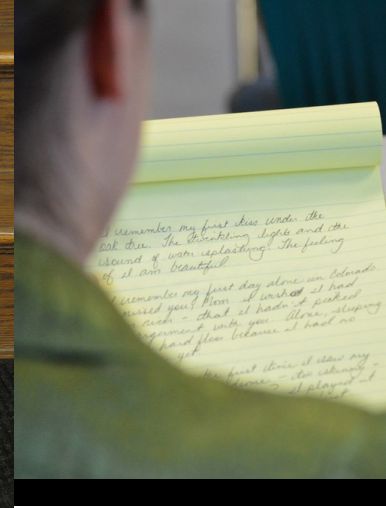 I remember my first kiss under the
oak tree. The twinkling lights and the
sound of water splashing. The feeling
of I am beautiful.
I remember my first day alone in Colorado
missed you, Mom. I wished I had
near - that I hadn't picked
argument with you. Alone, sleeping
hard floor because I had no
yet.
the first time I saw my
- I played it